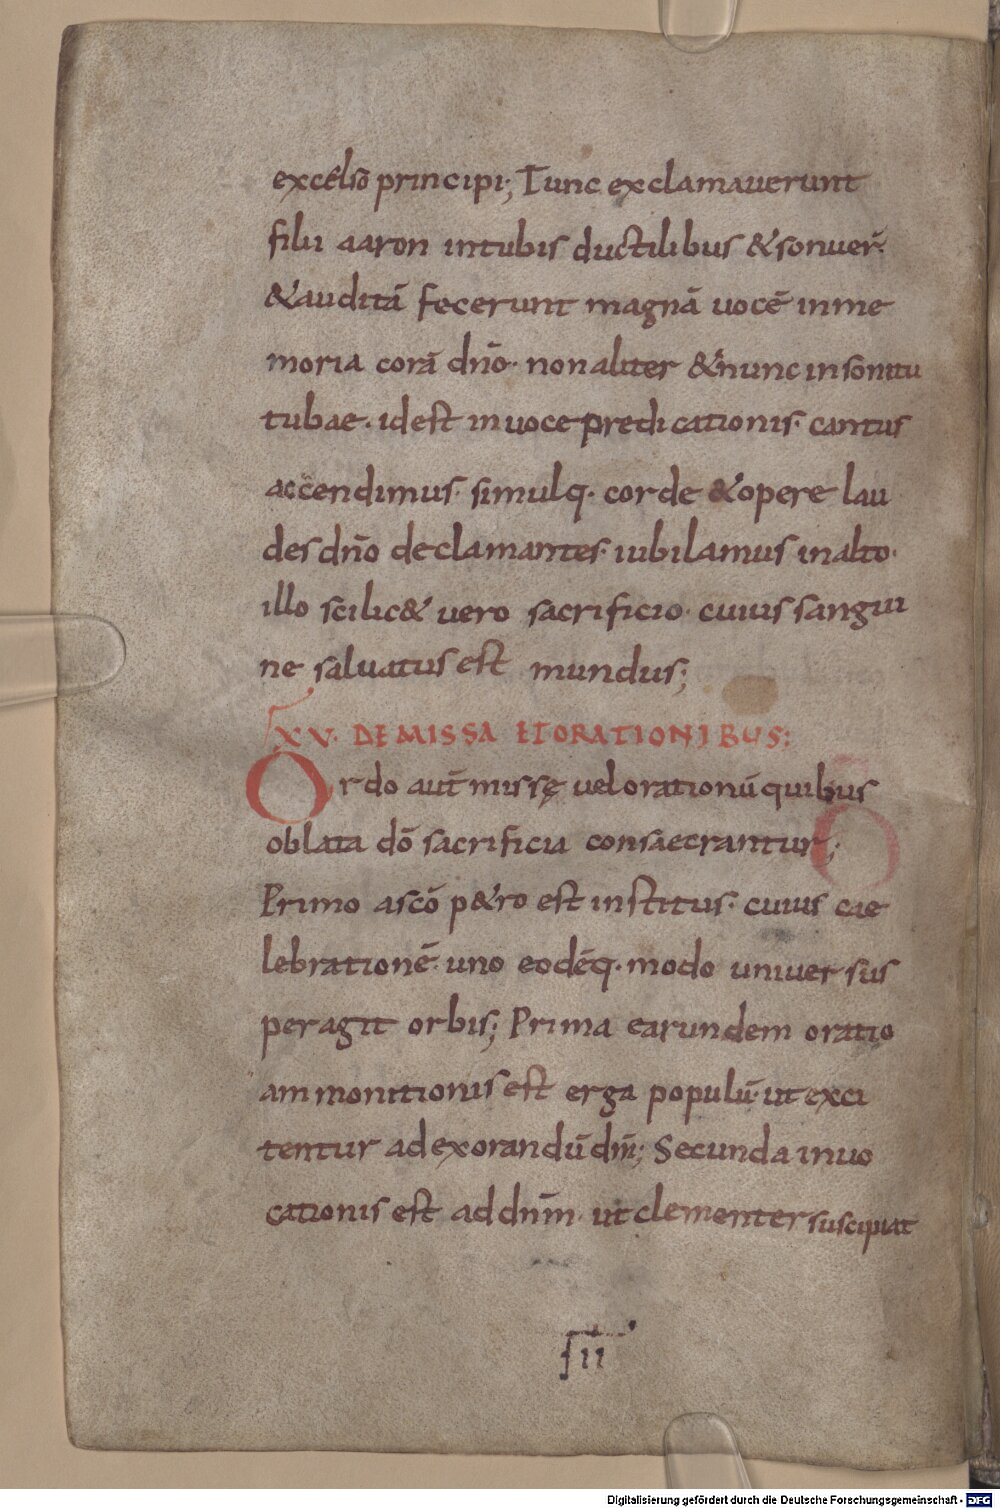 excelso principi; Tunc exclamauerunt
filii aaron intubis ductilibus &sonuer̄·
&auditā fecerunt magnā uocē inme
moria corā dn̄o· non aliter &nunc insonitu
tubae· idest inuoce predicationis· cantus
accendimus· simulq· corde &opere lau
des dn̄o declamantes· iubilamus inalto·
illo scilic& uero sacrificio· cuius sangui
ne saluatus est mundus;
XV· DE MISSA ET ORATIONIBUS:
Ordo aut̄ missę uel orationū quibus
oblata dō sacrificia consaecrantur;
Primo ascō p&ro est institus· cuius cae
lebrationē· uno eodēq· modo uniuersus
peragit orbis; Prima earundem oratio
ammonitionis est erga populū· ut exci
tentur adexorandū dn̄m; Secunda inuo
cationis est ad dn̄m· ut clementer suscipiat
Digitalisierung gefördert durch die Deutsche Forschungsgemeinschaft - DFG